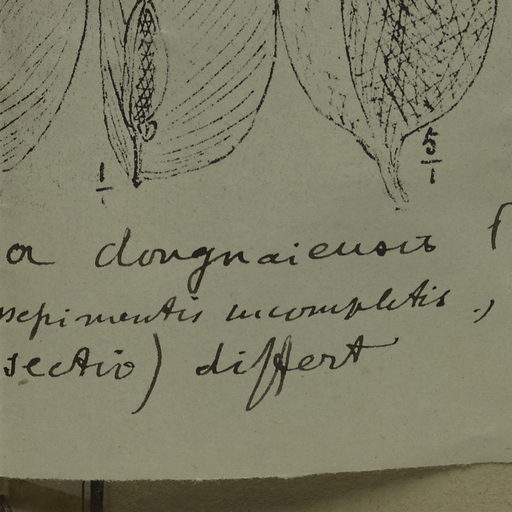 1/1
5/1
a dongnaiensis (
nsepimentis incompletis ,
sectio) differt